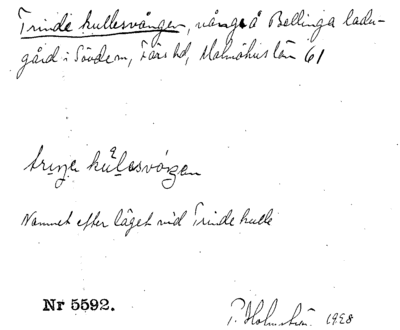 Trinde kullesvången, vång å Bellinga ladu-
gård i Sövdem, Färs hd, Malmöhus län 61
Namnet efter läget vid Trinde kulle
Nr 5592.
P. Holmström 1928